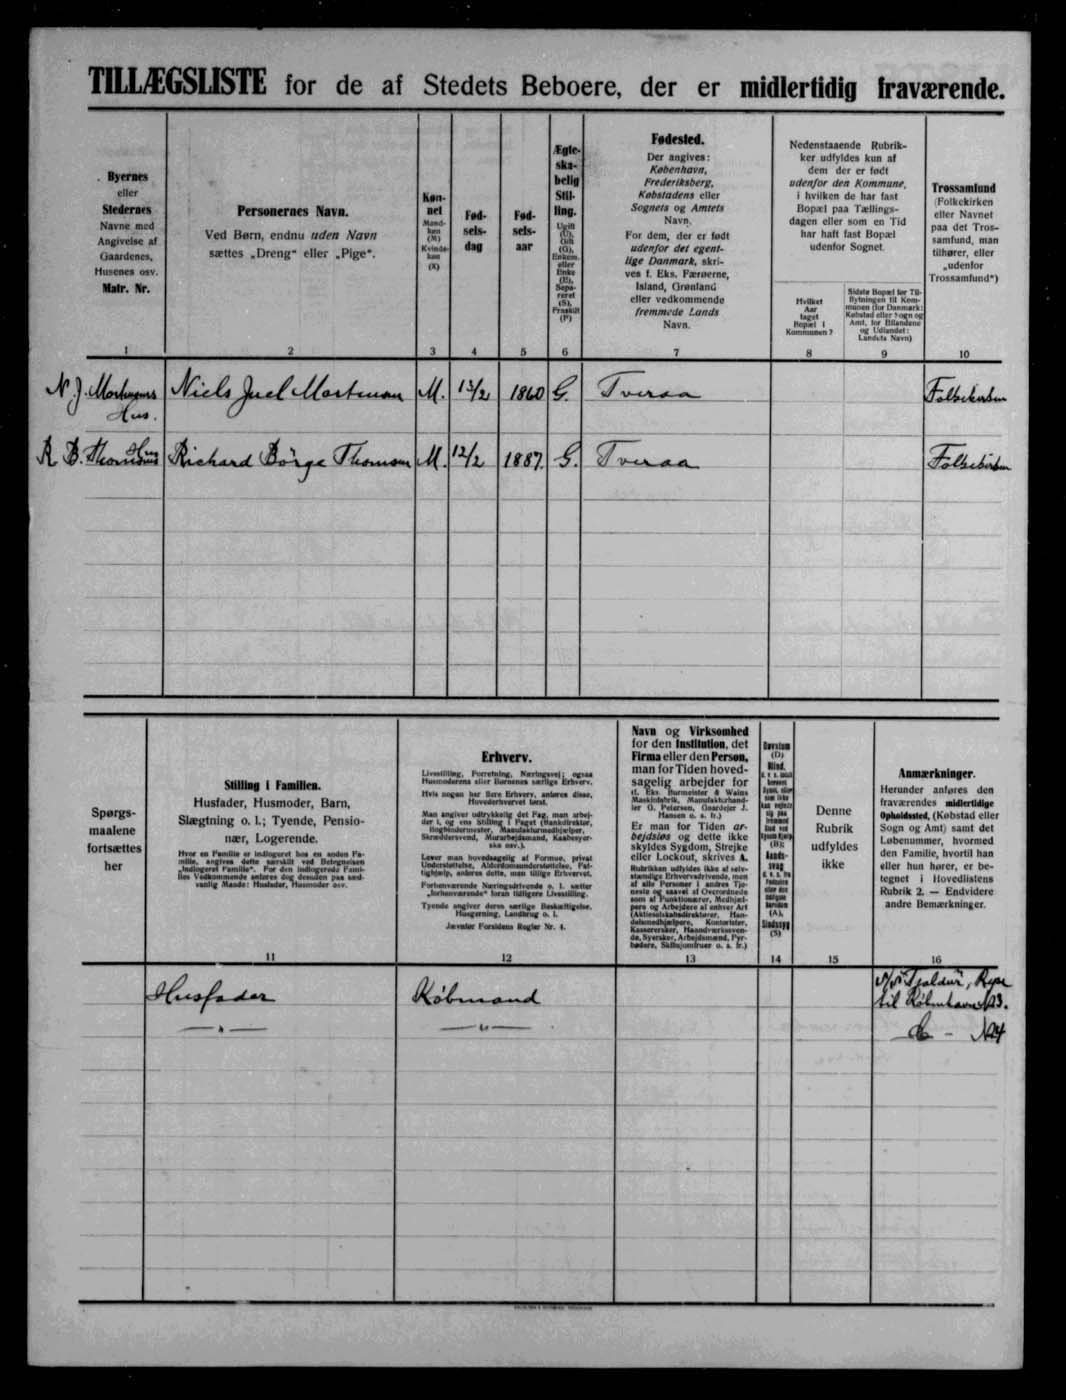 TILLÆGSLISTE for de af Stedets Beboere, der er midlertidig fraværende.
Byernes
eller
Stedernes
Navne med
Angivelse af
Gaardenes,
Husenes osv.
Matr. Nr.
Personernes Navn.
Ved Børn, endnu uden Navn
sættes „Dreng“ eller „Pige“.
Køn-
net
Mand-
køn
(M)
Kvinde-
køn
(K)
Fød-
sels-
dag
Fød-
sels-
aar
Ægte-
ska-
belig
Stil-
ling.
Ugift
(U),
Gift
(G),
Enkem.
eller
Enke
(E),
Sepa-
reret
(S),
Fraskilt
(F)
Fødested.
Der angives:
København,
Frederiksberg,
Købstadens eller
Sognets og Amtets
Navn.
For dem, der er født
udenfor det egent-
lige Danmark, skri-
ves f. Eks. Færøerne,
Island, Grønland
eller vedkommende
fremmede Lands
Navn.
Nedenstaaende Rubrik-
ker udfyldes kun af
dem der er født
udenfor den Kommune,
i hvilken de har fast
Bopæl paa Tællings-
dagen eller som en Tid
har haft fast Bopæl
udenfor Sognet.
Hvilket
Aar
taget
Bopæl i
Kommunen?
Sidste Bopæl før Til-
flytningen til Kom-
munen (for Danmark:
Købstad eller Sogn og
Amt, for Bilandene
og Udlandet:
Landets Navn)
Trossamfund
(Folkekirken
eller Navnet
paa det Tros-
samfund, man
tilhører, eller
„udenfor
Trossamfund“)
1 2 3 4 5 6 7 8 9 10
N. J. Mortensens Niels Juel Mortensen M. 13/2 1860 G. Tveraa Folkekirken
Hus.
R. B. Thomsens Hus Richard Börge Thomsen M. 12/2 1887. G. Tveraa Folkekirken
Spørgs-
maalene
fortsættes
her
Stilling i Familien.
Husfader, Husmoder, Barn,
Slægtning o. l.; Tyende, Pensio-
nær, Logerende.
Hvor en Familie er indlogeret hos en anden Fa-
milie, angives dette særskilt ved Betegnelsen
„Indlogeret Familie“. For den indlogerede Fami-
lies Vedkommende anføres dog desuden paa sæd-
vanlig Maade: Husfader, Husmoder osv.
Erhverv.
Livsstilling, Forretning, Næringsvej; ogsaa
Husmoderens eller Børnenes særlige Erhverv.
Hvis nogen har flere Erhverv, anføres disse,
Hovederhvervet først.
Man angiver udtrykkelig det Fag, man arbej-
der i, og ens Stilling i Faget (Bankdirektør,
Bogbindermester, Manufakturmedhjælper,
Skræddersvend, Murarbejdsmand, Kaabesyer-
ske osv.).
Lever man hovedsagelig af Formue, privat
Understøttelse, Alderdomsunderstøttelse, Fat-
tighjælp, anføres dette, man tillige Erhvervet.
Forhenværende Næringsdrivende o. l. sætter
„forhenværende“ foran tidligere Livsstilling.
Tyende angiver deres særlige Beskæftigelse,
Husgerning, Landbrug o. l.
Jævnfør Forsidens Regler Nr. 4.
Navn og Virksomhed
for den Institution, det
Firma eller den Person,
man for Tiden hoved-
sagelig arbejder for
(f. Eks. Burmeister & Wains
Maskinfabrik, Manufakturhand-
ler G. Petersen, Gaardejer J.
Hansen o. s. fr.)
Er man for Tiden ar-
bejdsløs og dette ikke
skyldes Sygdom, Strejke
eller Lockout, skrives A.
Rubrikken udfyldes ikke af selv-
stændige Erhvervsdrivende, men
af alle Personer i andres Tje-
neste og saavel af Overordnede
som af Funktionærer, Medhjæl-
pere og Arbejdere af enhver Art
(Aktieselskabsdirektører, Han-
delsmedhjælpere, Kontorister,
Kassererske, Haandværkssven-
de, Syersker, Arbejdsmænd, Fyr-
bødere, Skibsjomfruer o. s. fr.)
Døvstum
(D)
Blind,
(B);
Aands-
svag
(A),
Sindssyg
(S)
Denne
Rubrik
udfyldes
ikke
Anmærkninger.
Herunder anføres den
fraværendes midlertidige
Opholdssted, (Købstad eller
Sogn og Amt) samt det
Løbenummer, hvormed
den Familie, hvortil han
eller hun hører, er be-
tegnet i Hovedlistens
Rubrik 2. — Endvidere
andre Bemærkninger.
11 12 13 14 15 16
Husfader Købmand "Tjaldur", Rejse
til København
— " — — " —